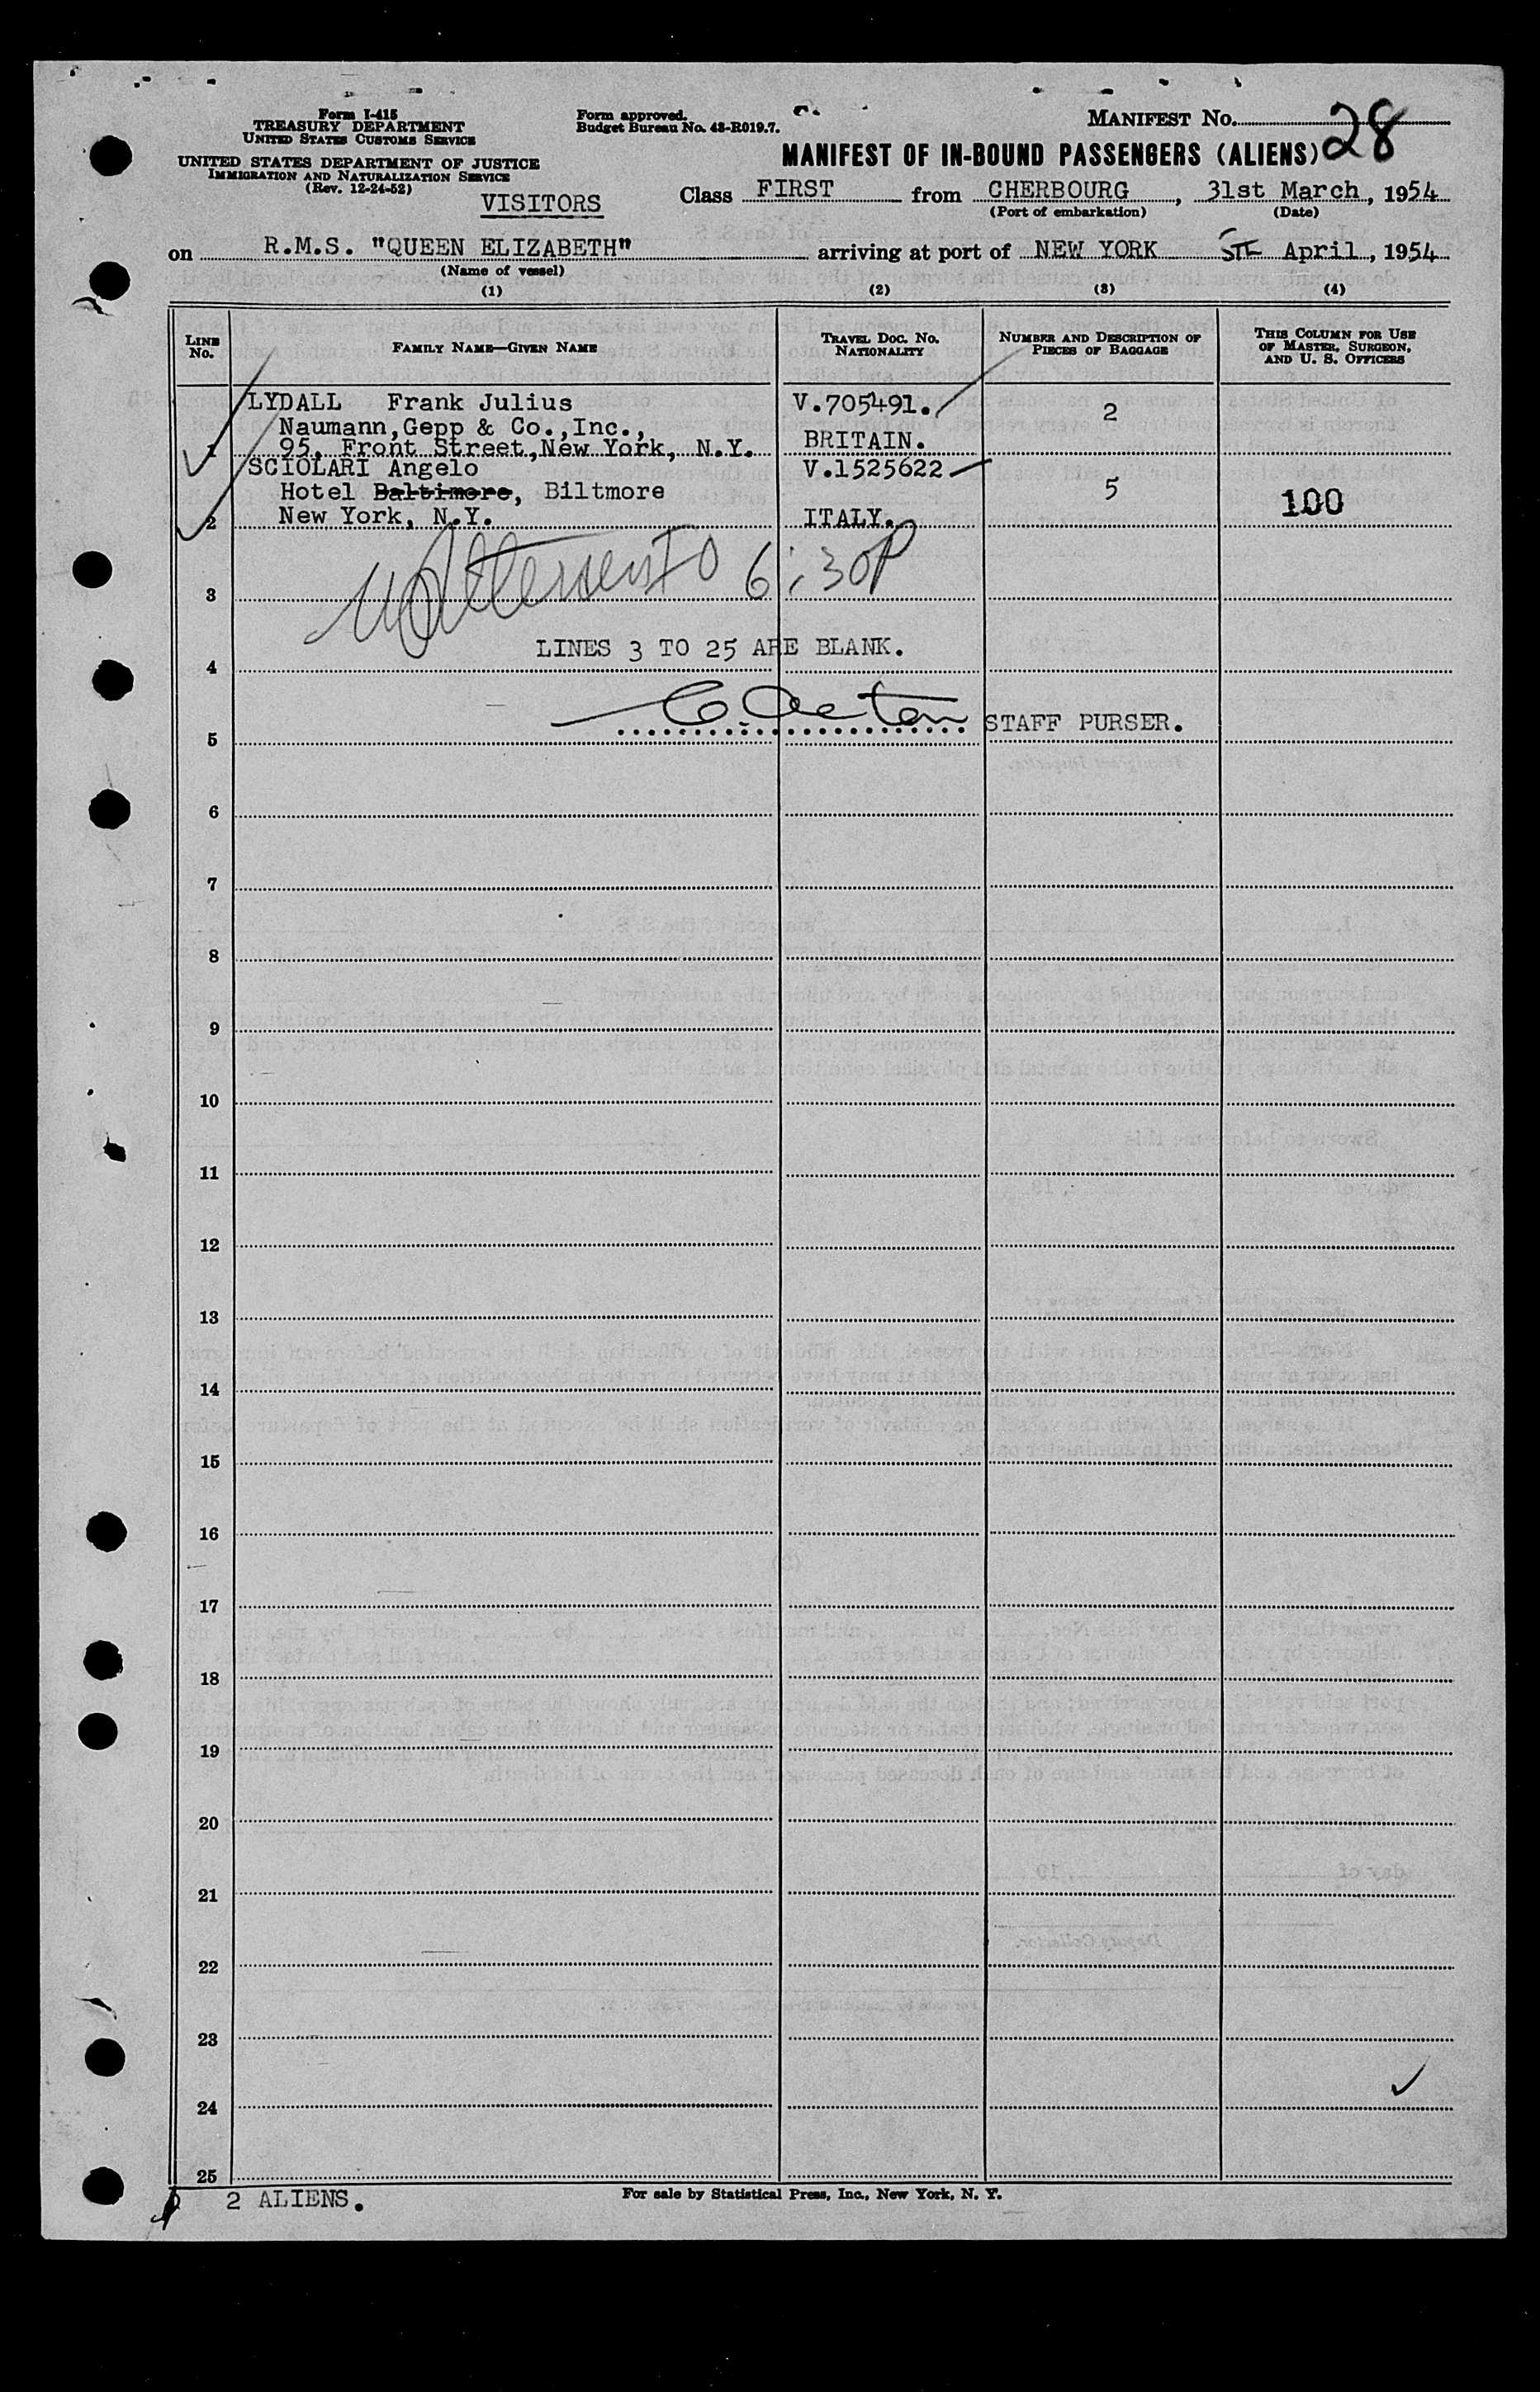 Form I-415
TREASURY DEPARTMENT
UNITED STATES CUSTOMS SERVICE
UNITED STATES DEPARTMENT OF JUSTICE
IMMIGRATION AND NATURALIZATION SERVICE
(Rev. 12-24-52)
Form approved.
Budget Bureau No. 43-R019.7.
MANIFEST No. 28
MANIFEST OF IN-BOUND PASSENGERS (ALIENS)
VISITORS
Class FIRST from CHERBOURG, 31st March, 1954
(Port of embarkation) (Date)
on R.M.S. "QUEEN ELIZABETH" arriving at port of NEW YORK 5TH April, 1954
(Name of vessel)
(1) (2) (3) (4)
LINE No. FAMILY NAME—GIVEN NAME TRAVEL DOC. NO. NATIONALITY NUMBER AND DESCRIPTION OF PIECES OF BAGGAGE THIS COLUMN FOR USE OF MASTER, SURGEON, AND U. S. OFFICERS
LYDALL Frank Julius V.705491. 2
Naumann,Gepp & Co.,Inc.,
1 95, Front Street,New York, N.Y. BRITAIN.
SCIOLARI Angelo V.1525622
Hotel Baltimore, Biltmore 5 100
2 New York, N.Y. ITALY.
3 6:30P
LINES 3 TO 25 ARE BLANK.
4
STAFF PURSER.
5
6
7
8
9
10
11
12
13
14
15
16
17
18
19
20
21
22
23
24
25
2 ALIENS.
For sale by Statistical Press, Inc., New York, N. Y.